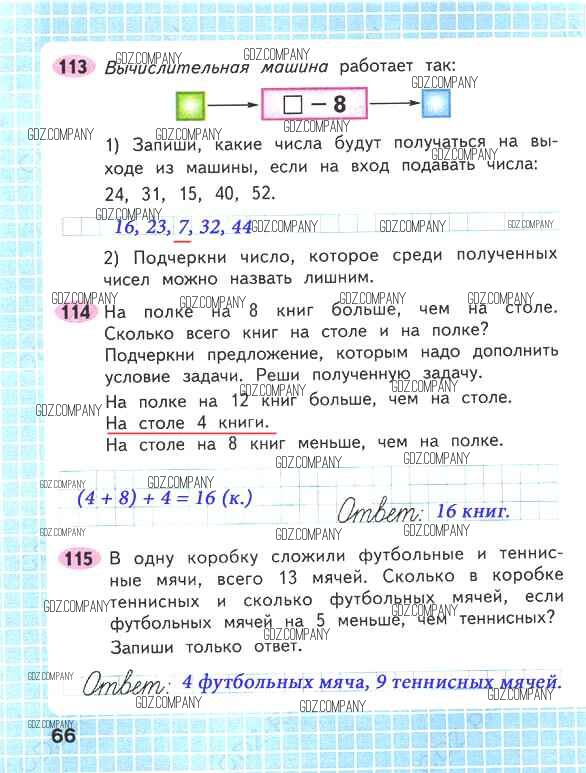 113 Вычислительная машина работает так:
□ – 8
1) Запиши, какие числа будут получаться на вы-
ходе из машины, если на вход подавать числа:
24, 31, 15, 40, 52.
16, 23, 7, 32, 44
2) Подчеркни число, которое среди полученных
чисел можно назвать лишним.
114 На полке на 8 книг больше, чем на столе.
Сколько всего книг на столе и на полке?
Подчеркни предложение, которым надо дополнить
условие задачи. Реши полученную задачу.
На полке на 12 книг больше, чем на столе.
На столе 4 книги.
На столе на 8 книг меньше, чем на полке.
(4 + 8) + 4 = 16 (к.)
Ответ: 16 книг.
115 В одну коробку сложили футбольные и теннис-
ные мячи, всего 13 мячей. Сколько в коробке
теннисных и сколько футбольных мячей, если
футбольных мячей на 5 меньше, чем теннисных?
Запиши только ответ.
Ответ: 4 футбольных мяча, 9 теннисных мячей.
66
GDZ.COMPANY